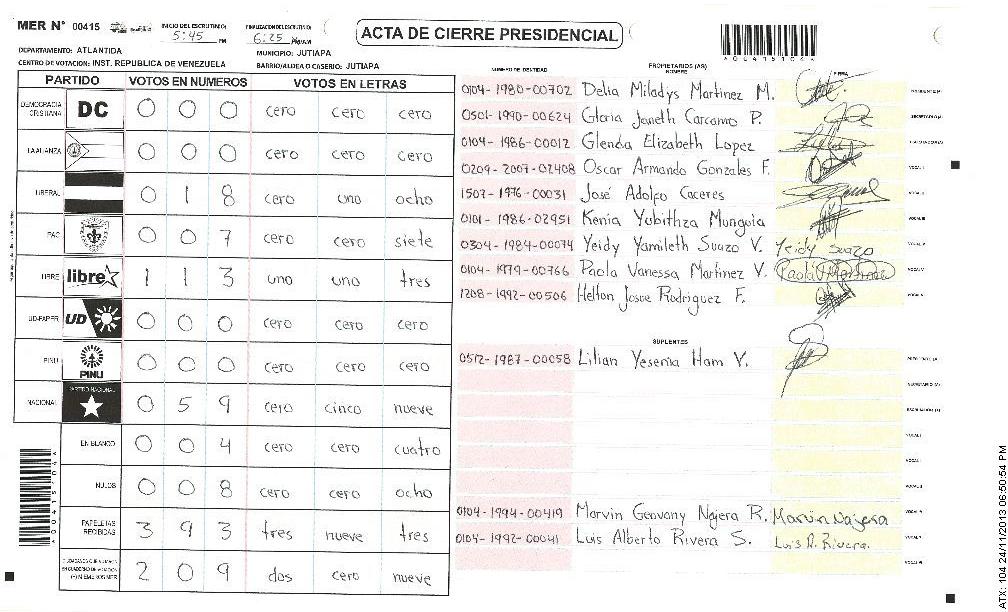 MER N° 00415
INICIO DEL ESCRUTINIO: 5:45 PM
FINALIZACION DEL ESCRUTINIO: 6:25 PM
ACTA DE CIERRE PRESIDENCIAL
DEPARTAMENTO: ATLANTIDA
MUNICIPIO: JUTIAPA
CENTRO DE VOTACION: INST. REPUBLICA DE VENEZUELA
BARRIO/ALDEA O CASERIO: JUTIAPA
PARTIDO VOTOS EN NUMEROS VOTOS EN LETRAS
DEMOCRACIA CRISTIANA DC 0 0 0 cero cero cero
LA ALIANZA 0 0 0 cero cero cero
LIBERAL 0 1 8 cero uno ocho
PAC 0 0 7 cero cero siete
LIBRE libre 1 1 3 uno uno tres
UD-FAPER UD 0 0 0 cero cero cero
PINU PINU 0 0 0 cero cero cero
NACIONAL PARTIDO NACIONAL 0 5 9 cero cinco nueve
EN BLANCO 0 0 4 cero cero cuatro
NULOS 0 0 8 cero cero ocho
PAPELETAS RECIBIDAS 3 9 3 tres nueve tres
2 0 9 dos cero nueve
NUMERO DE IDENTIDAD PROPIETARIOS (AS) NOMBRE FIRMA
0104-1980-00702 Delia Miladys Martinez M.
0501-1990-00624 Gloria Janeth Carcamo P.
0104-1986-00012 Glenda Elizabeth Lopez
0209-2007-02408 Oscar Armando Gonzales F.
1507-1976-00031 José Adolfo Caceres
0101-1986-02951 Kenia Yubithza Munguia
0304-1984-00074 Yeidy Yamileth Suazo V. Yeidy Suazo
0104-1979-00766 Paola Vanessa Martinez V.
1208-1992-00506 Helton Josue Rodriguez F.
SUPLENTES
0512-1987-00058 Lilian Yesenia Ham V.
0104-1994-00419 Marvin Geovany Najera R. Marvin Najera
0104-1992-00041 Luis Alberto Rivera S. Luis A. Rivera.
A00415104A
ATX: 104 24/11/2013 06:50:54 PM